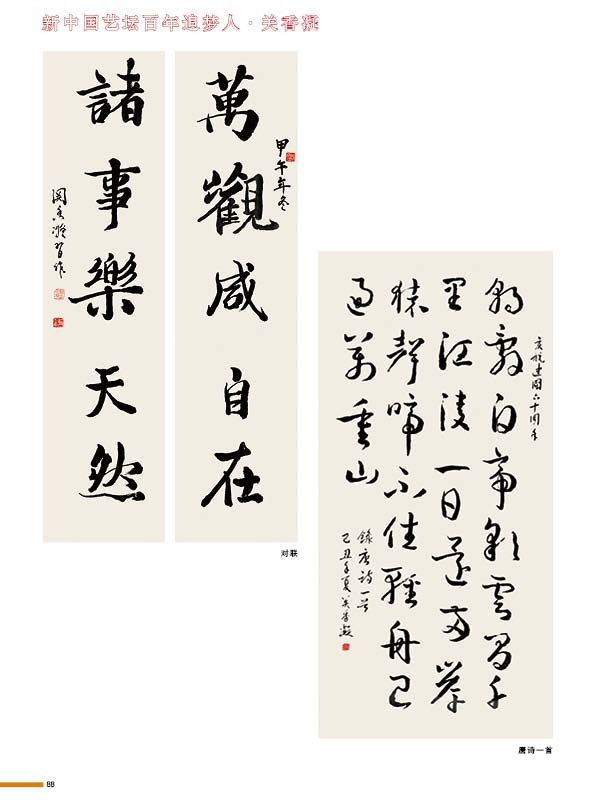 新中国艺坛百年追梦人·美香凝
甲午年冬
萬觀咸自在
諸事樂天然
関香凝習作
对联
慶祝建國六十周年
朝辭白帝彩雲間千
里江陵一日還兩岸
猿聲啼不住輕舟已
過萬重山
錄唐詩一首
己丑年夏美香凝
唐诗一首
88